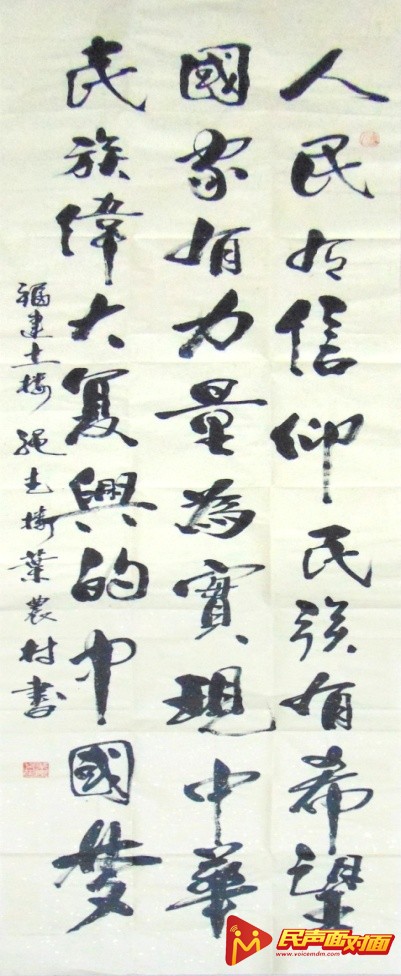 人民有信仰民族有希望
國家有力量為實現中華
民族偉大复興的中國梦
福建土楼 绳武楼葉農村書
民声面对面
www.voicemdm.com